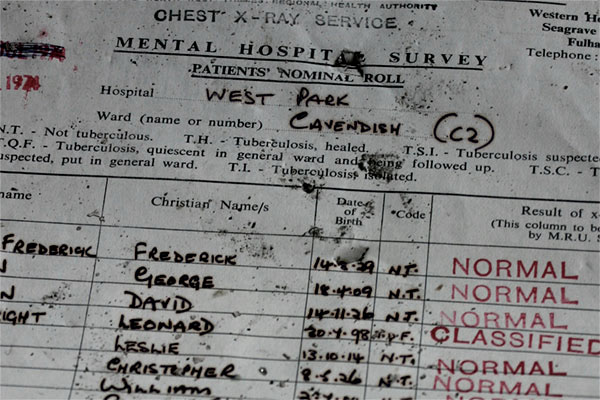 REGIONAL HEALTH AUTHORITY
CHEST X-RAY SERVICE
Western
Seagrave
Fulha
Telephone :
MENTAL HOSPITAL SURVEY
PATIENTS' NOMINAL ROLL
1974
Hospital WEST PARK
Ward (name or number) CAVENDISH (C2)
N.T. - Not tuberculous. T.H. - Tuberculosis, healed. T.S.I. - Tuberculosis suspected
T.Q.F. - Tuberculosis, quiescent in general ward and being followed up. T.S.C. - T
suspected, put in general ward. T.I. - Tuberculosis, isolated.
name Christian Name/s Date of Birth Code Result of x-
(This column to be
by M.R.U. S
FREDERICK FREDERICK N.T. NORMAL
GEORGE 18.4.09 N.T. NORMAL
N DAVID 14.11.26 N.T. NORMAL
RIGHT LEONARD CLASSIFIED
LESLIE 13.10.14 N.T. NORMAL
CHRISTOPHER 8.5.26 N.T. NORMAL
WILLIAM N.T.